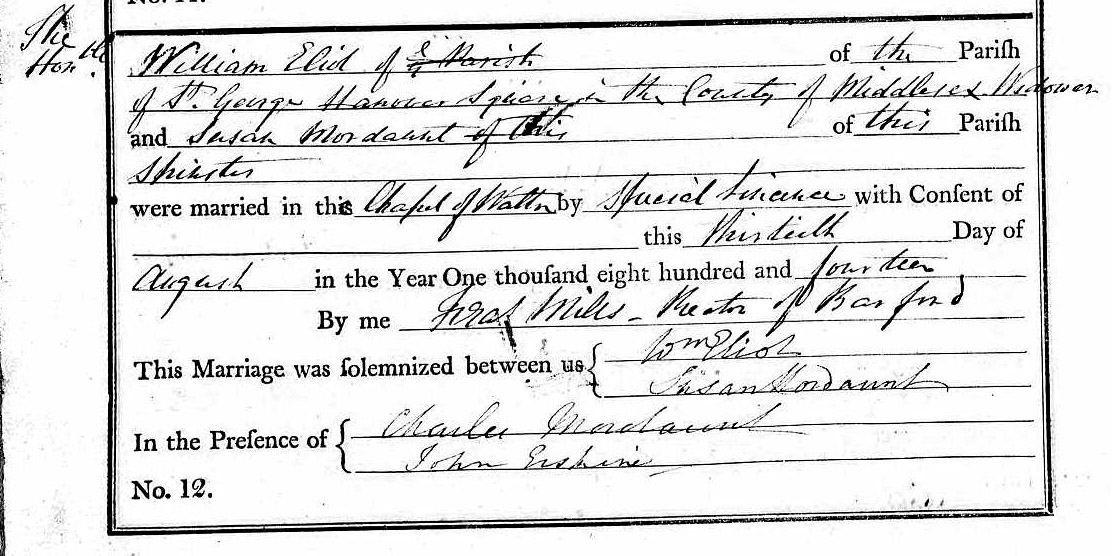 The
Honble.
William Eliot of of the Parish
of St. George Hanover Square in the County of Middlesex Widower
and Susan Mordaunt of this of this Parish
Spinster
were married in this Chapel of Walton by Special Licence with Conſent of
this Thirtieth Day of
August in the Year One thouſand eight hundred and fourteen
By me Mills - Rector of Barford
This Marriage was ſolemnized between us { Wm Eliot
Susan Mordaunt
In the Preſence of { Charles Mordaunt
John Erskine
No. 12.